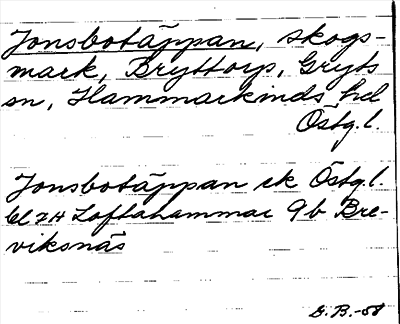 Jonsbotäppan, skogs-
mark, Bryttorp, Gryts
sn, Hammarkinds hd
Östg.l.
Jonsbotäppan ek Östg.l.
bl 7H Loftahammar 9b Bre-
viksnäs
G.B.-58